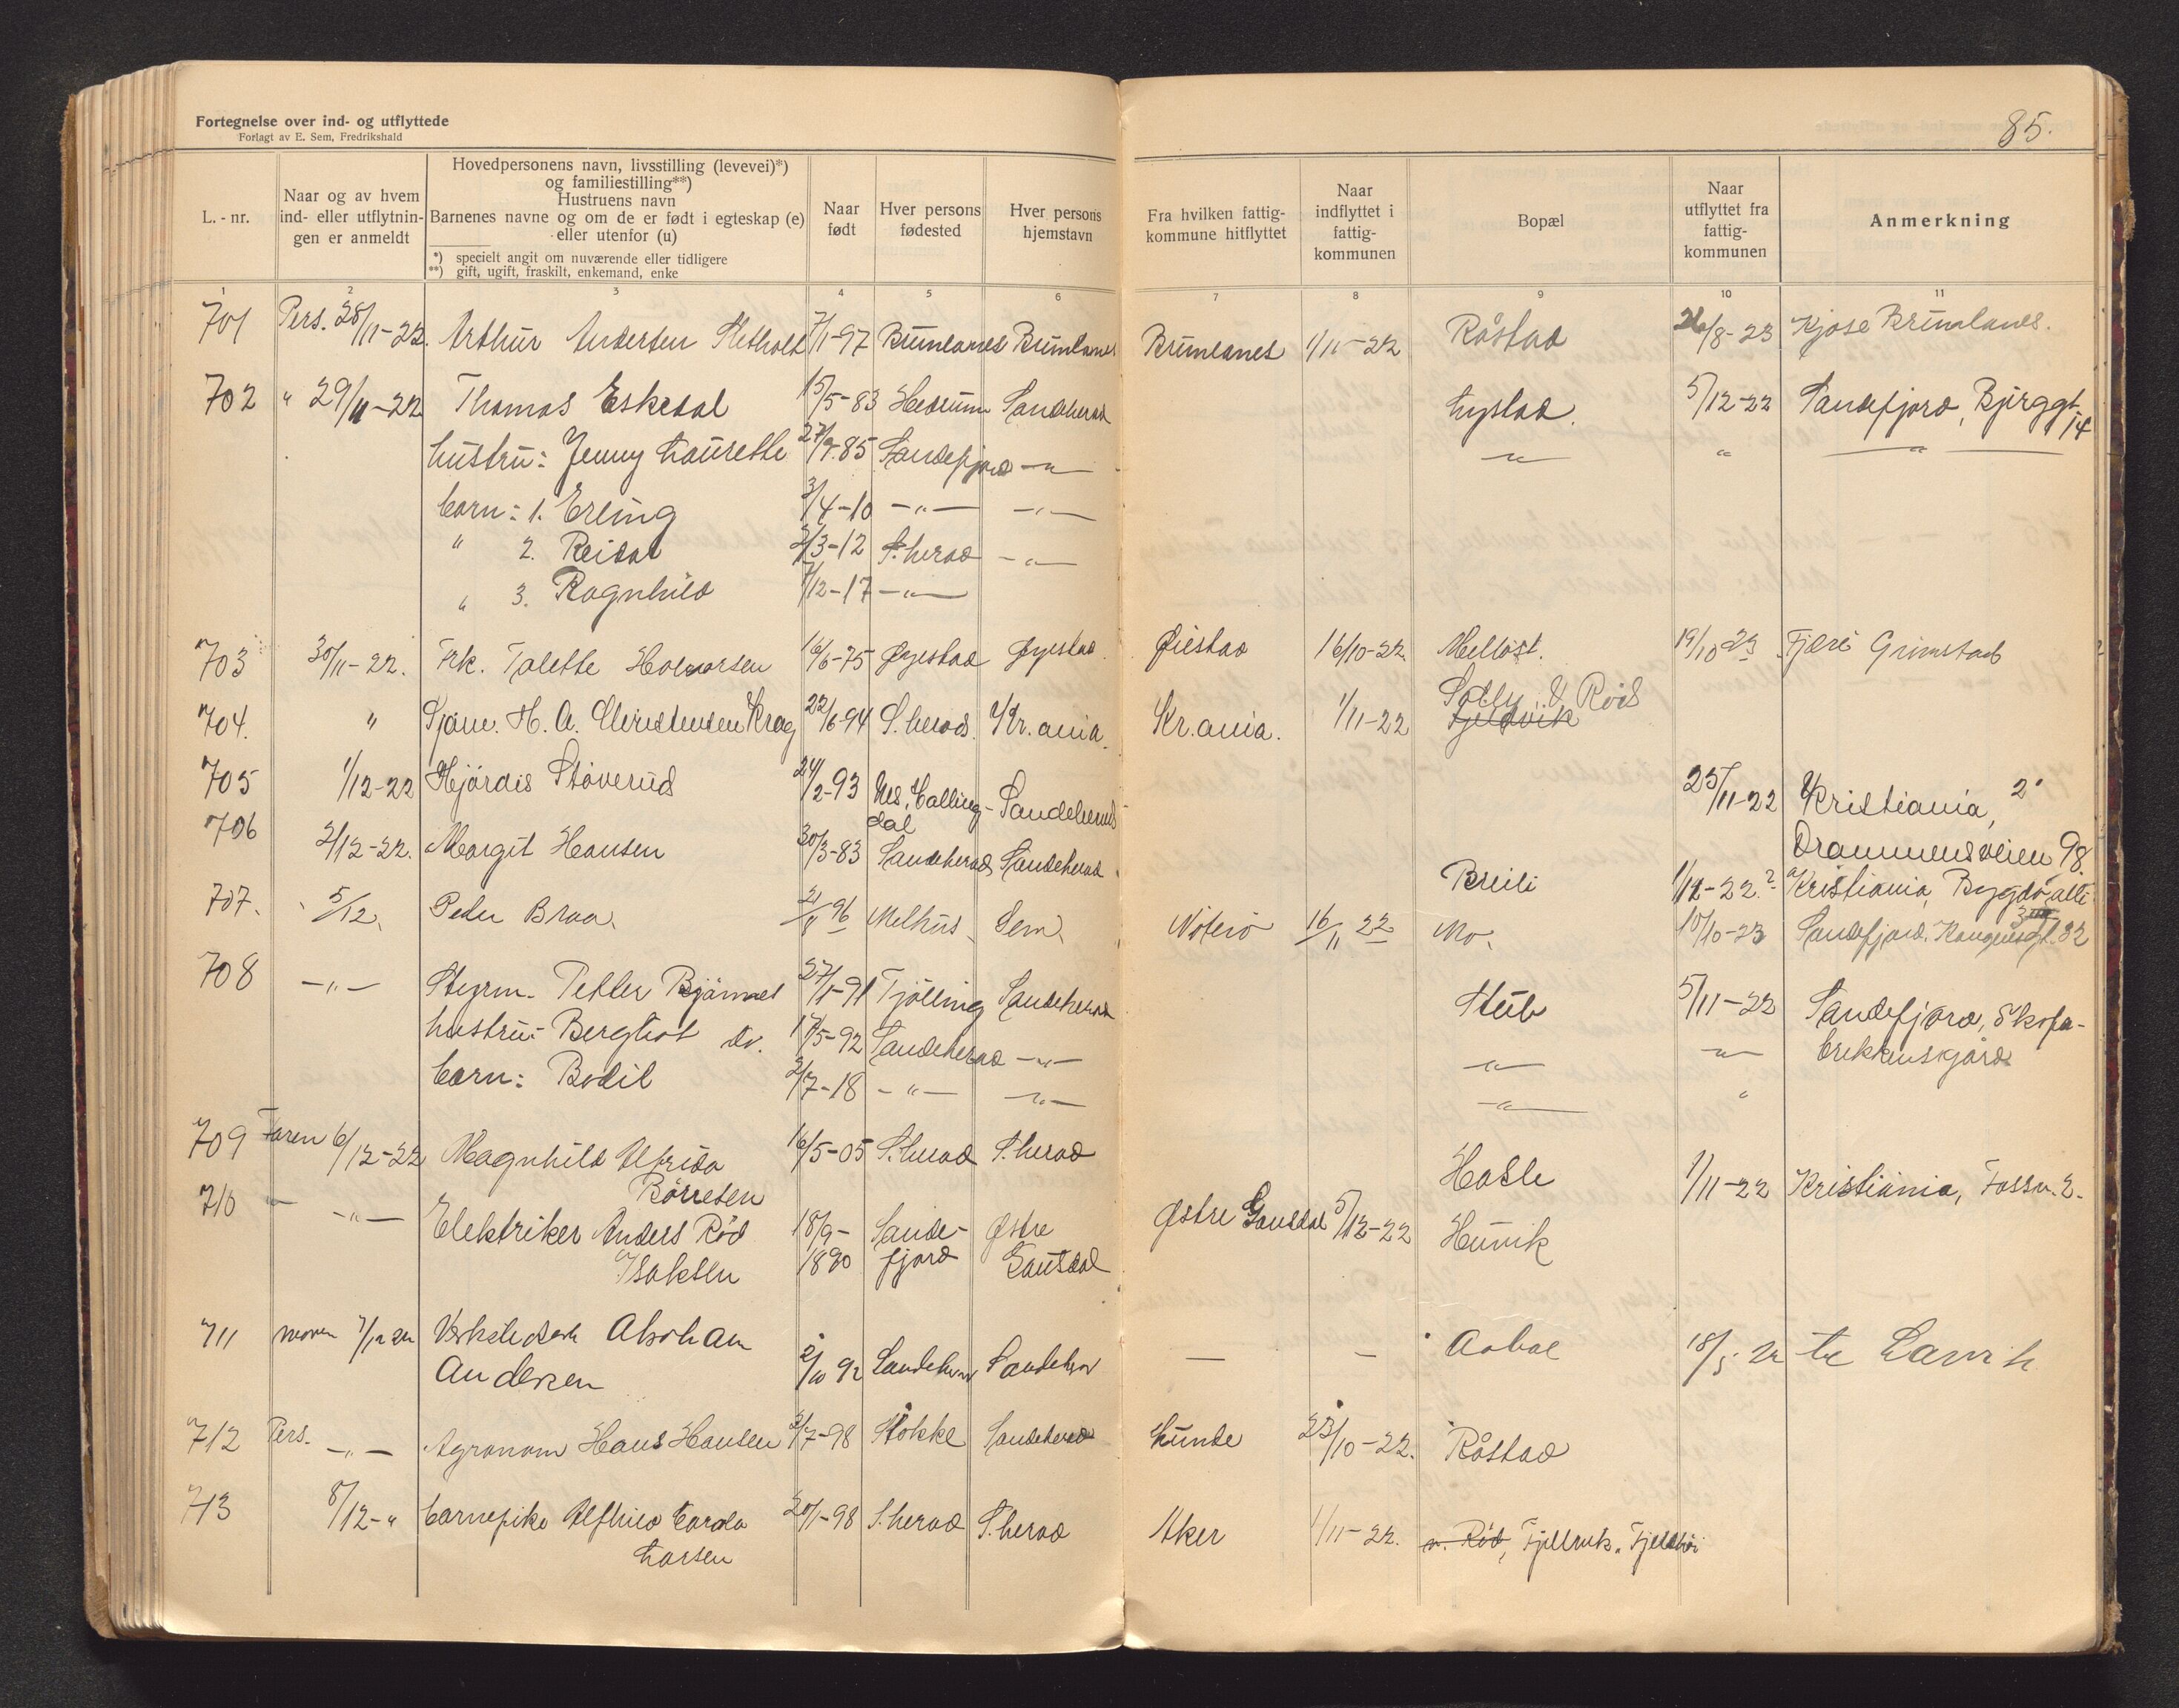 Fortegnelse over ind- og utflyttede
Forlagt av E. Sem, Fredrikshald
85.
L. - nr.
Naar og av hvem ind- eller utflytnin- gen er anmeldt
Hovedpersonens navn, livsstilling (levevei)*)
og familiestilling**)
Hustruens navn
Barnenes navne og om de er født i egteskap (e)
eller utenfor (u)
*) specielt angit om nuværende eller tidligere
**) gift, ugift, fraskilt, enkemand, enke
Naar født
Hver persons fødested
Hver persons hjemstavn
Fra hvilken fattig- kommune hitflyttet
Naar indflyttet i fattig- kommunen
Bopæl
Naar utflyttet fra fattig- kommunen
Anmerkning
1 2 3 4 5 6 7 8 9 10 11
701 Pers. 28/11-22. Arthur Andersen 7/1-97 Brunlanes Brunlanes Brunlanes 1/11-22 Råstad 26/8-23 Kjose Brunlanes.
702 " 29/11-22 Thomas Eskedal 15/5-83 Hedrum Sandeherad Nystad. 5/12-22 Sandefjord, Bjerggt. 14
hustru: Jenny Laurette 85 Sandefjord -"- -"- " -"-
barn: 1. Erling 3/4-10 -"- -"-
" 2. Reidar 2/3-12 S.herad -"-
" 3. Ragnhild 7/12-17 -"-
703 30/11-22. Frk. Tolette Halvorsen 16/6-75 Øyestad Øyestad Øiestad 16/10-22. Melløst. 19/10 23 Fjære Grimstad
704. " Sjøm. H. A. Christensen Krag 22/6-94 S.herad. Kr.ania. Kr.ania. 1/11-22 Solly V. Rød
Fjeldvik
705 1/12-22 Hjørdis Støverud 24/2-93 Nes, Halling- Sandeherad 25/11-22 Kristiania, 2'
dal
Drammensveien 98.
706 2/12-22. Margit Hansen 30/3-83 Sandeherad Sandeherad Breili 1/12-22.? Kristiania, Bygdø alle
707. 5/12. Peder Braa. 21/11 96 Melhus Sem. Nøterø 16/11 22 Mo. 10/10-23 Sandefjord. Kongensgt. 32
708 -"- Styrm. Petter Bjønnes 27/1-91 Tjølling Sandeherad Stub 5/11-22 Sandefjord, Skofa-
hustru: Bergliot do. 17/5-92 Sandeherad -"- -"- -"- brikkensgård
barn: Bodil 2/7-18 -"- -"- -"- "
709 Faren 6/12-22 Magnhild Alfrida 16/5-05 S.herad S.herad Hasle 1/11-22 Kristiania, Fossv. 2.
Børresen
710 " -"- Elektriker Anders Rød 18/9- Sande- Østre Østre Gausdal 5/12-22 Hunvik
Isaksen 1890 fjord Gausdal
711 moren 7/12 22 Abraham
Andersen 2/10 92 Sandeher Sandeher — — Aabol 18/5. 22 til Larvik
712 Pers. -"- Agronom Hans Hansen 3/7-98 Stokke Sandeherad Hunde 23/10-22. Råstad
713 8/12-" barnepike Alfhild Carda 20/1-98 S.herad S.herad Aker 1/11-22. n. Rød, Fjellvik. Fjeldhøi
Larsen